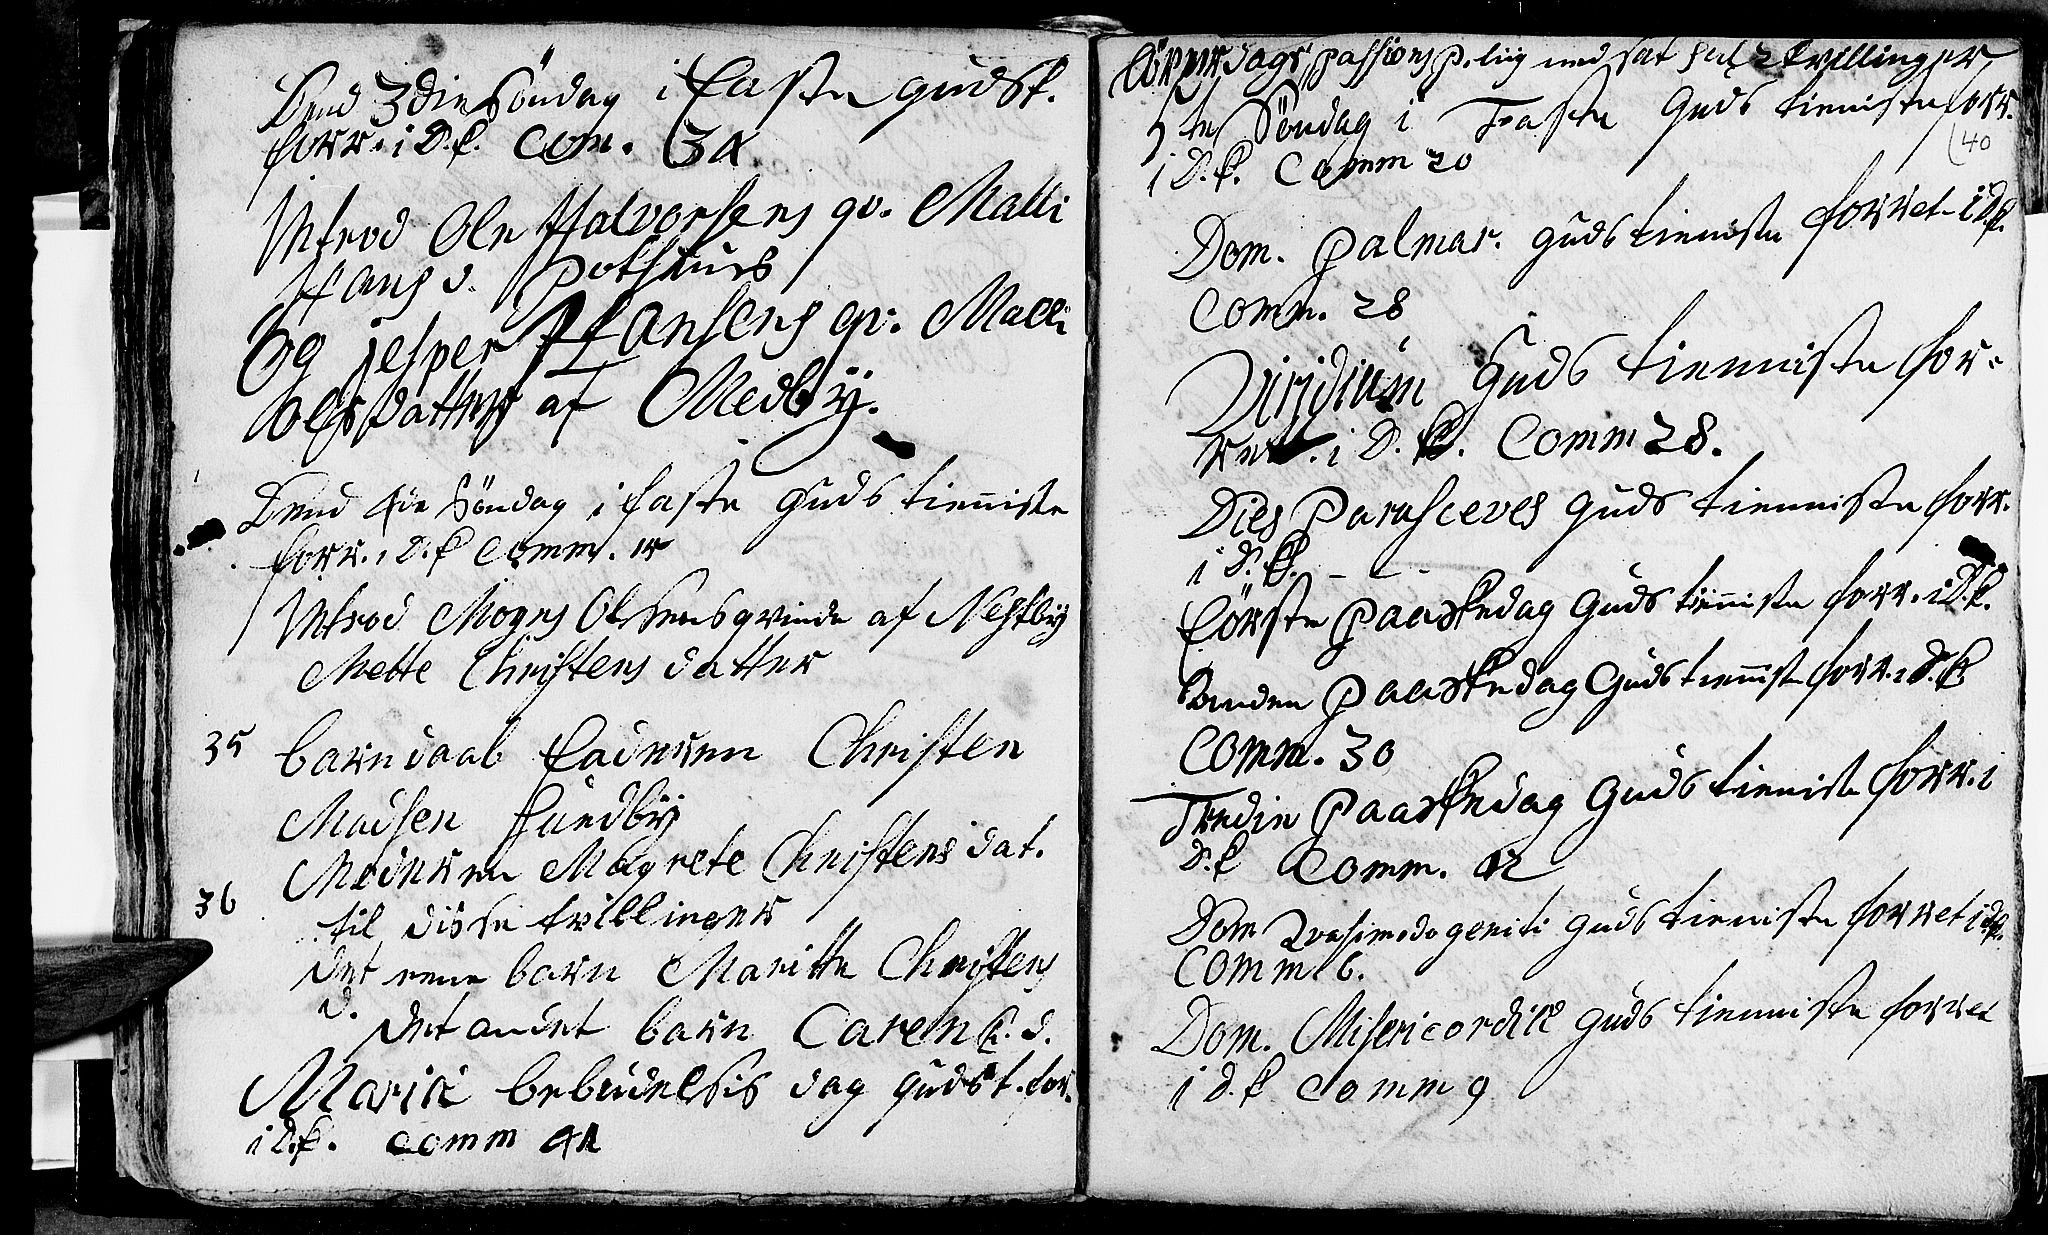 Dend 3die Söndag i Faste gudst.
forr. i D.k. Com. 34
Introd Ole Halvorsens qv. Malli
Hans d. Pothuus
Og jesper Hansens qv. Malli
olesdatter af Medbÿ.
Dend 4de Söndag i faste Guds tienniste
forr. i D.k Comm.
Introd Mogns Olsens qvinde af Nestbÿ
Mette Christens datter
35 barn daab Faderen Christen
Madsen Sundbÿ
Moderen Magrete Christens dat.
36
til disse tvillinger
det eene barn Maritte Christens
d. det andet barn Caren C. d.
Mariæ bebudelsis dag gudst. for.
i D.k. Comm 41
Löverdags passions P. med sat 2 tvillinger
5te Söndag i Faste Guds tienniste forr.
40
i D.k. Comm 20
Dom. Palmar. guds tienniste forret i D.k.
Comm. 28
Viridium Guds tienniste for-
ret. i D.k. Comm 28.
Dies Parasceves guds tienniste forr.
i D.k. - - -
Förste Paaskedag Guds tienniste forr. i D.k.
Anden Paaskedag Guds tienniste forr. i D.k
Comm. 30
Tredie Paaskedag Guds tieniste forr. i
D.k Comm. 12
Dom Qvasimodogeniti guds tienniste forret i D.k.
Comm 6.
Dom. Misericordiæ guds tienniste forret
i D.k Comm 9